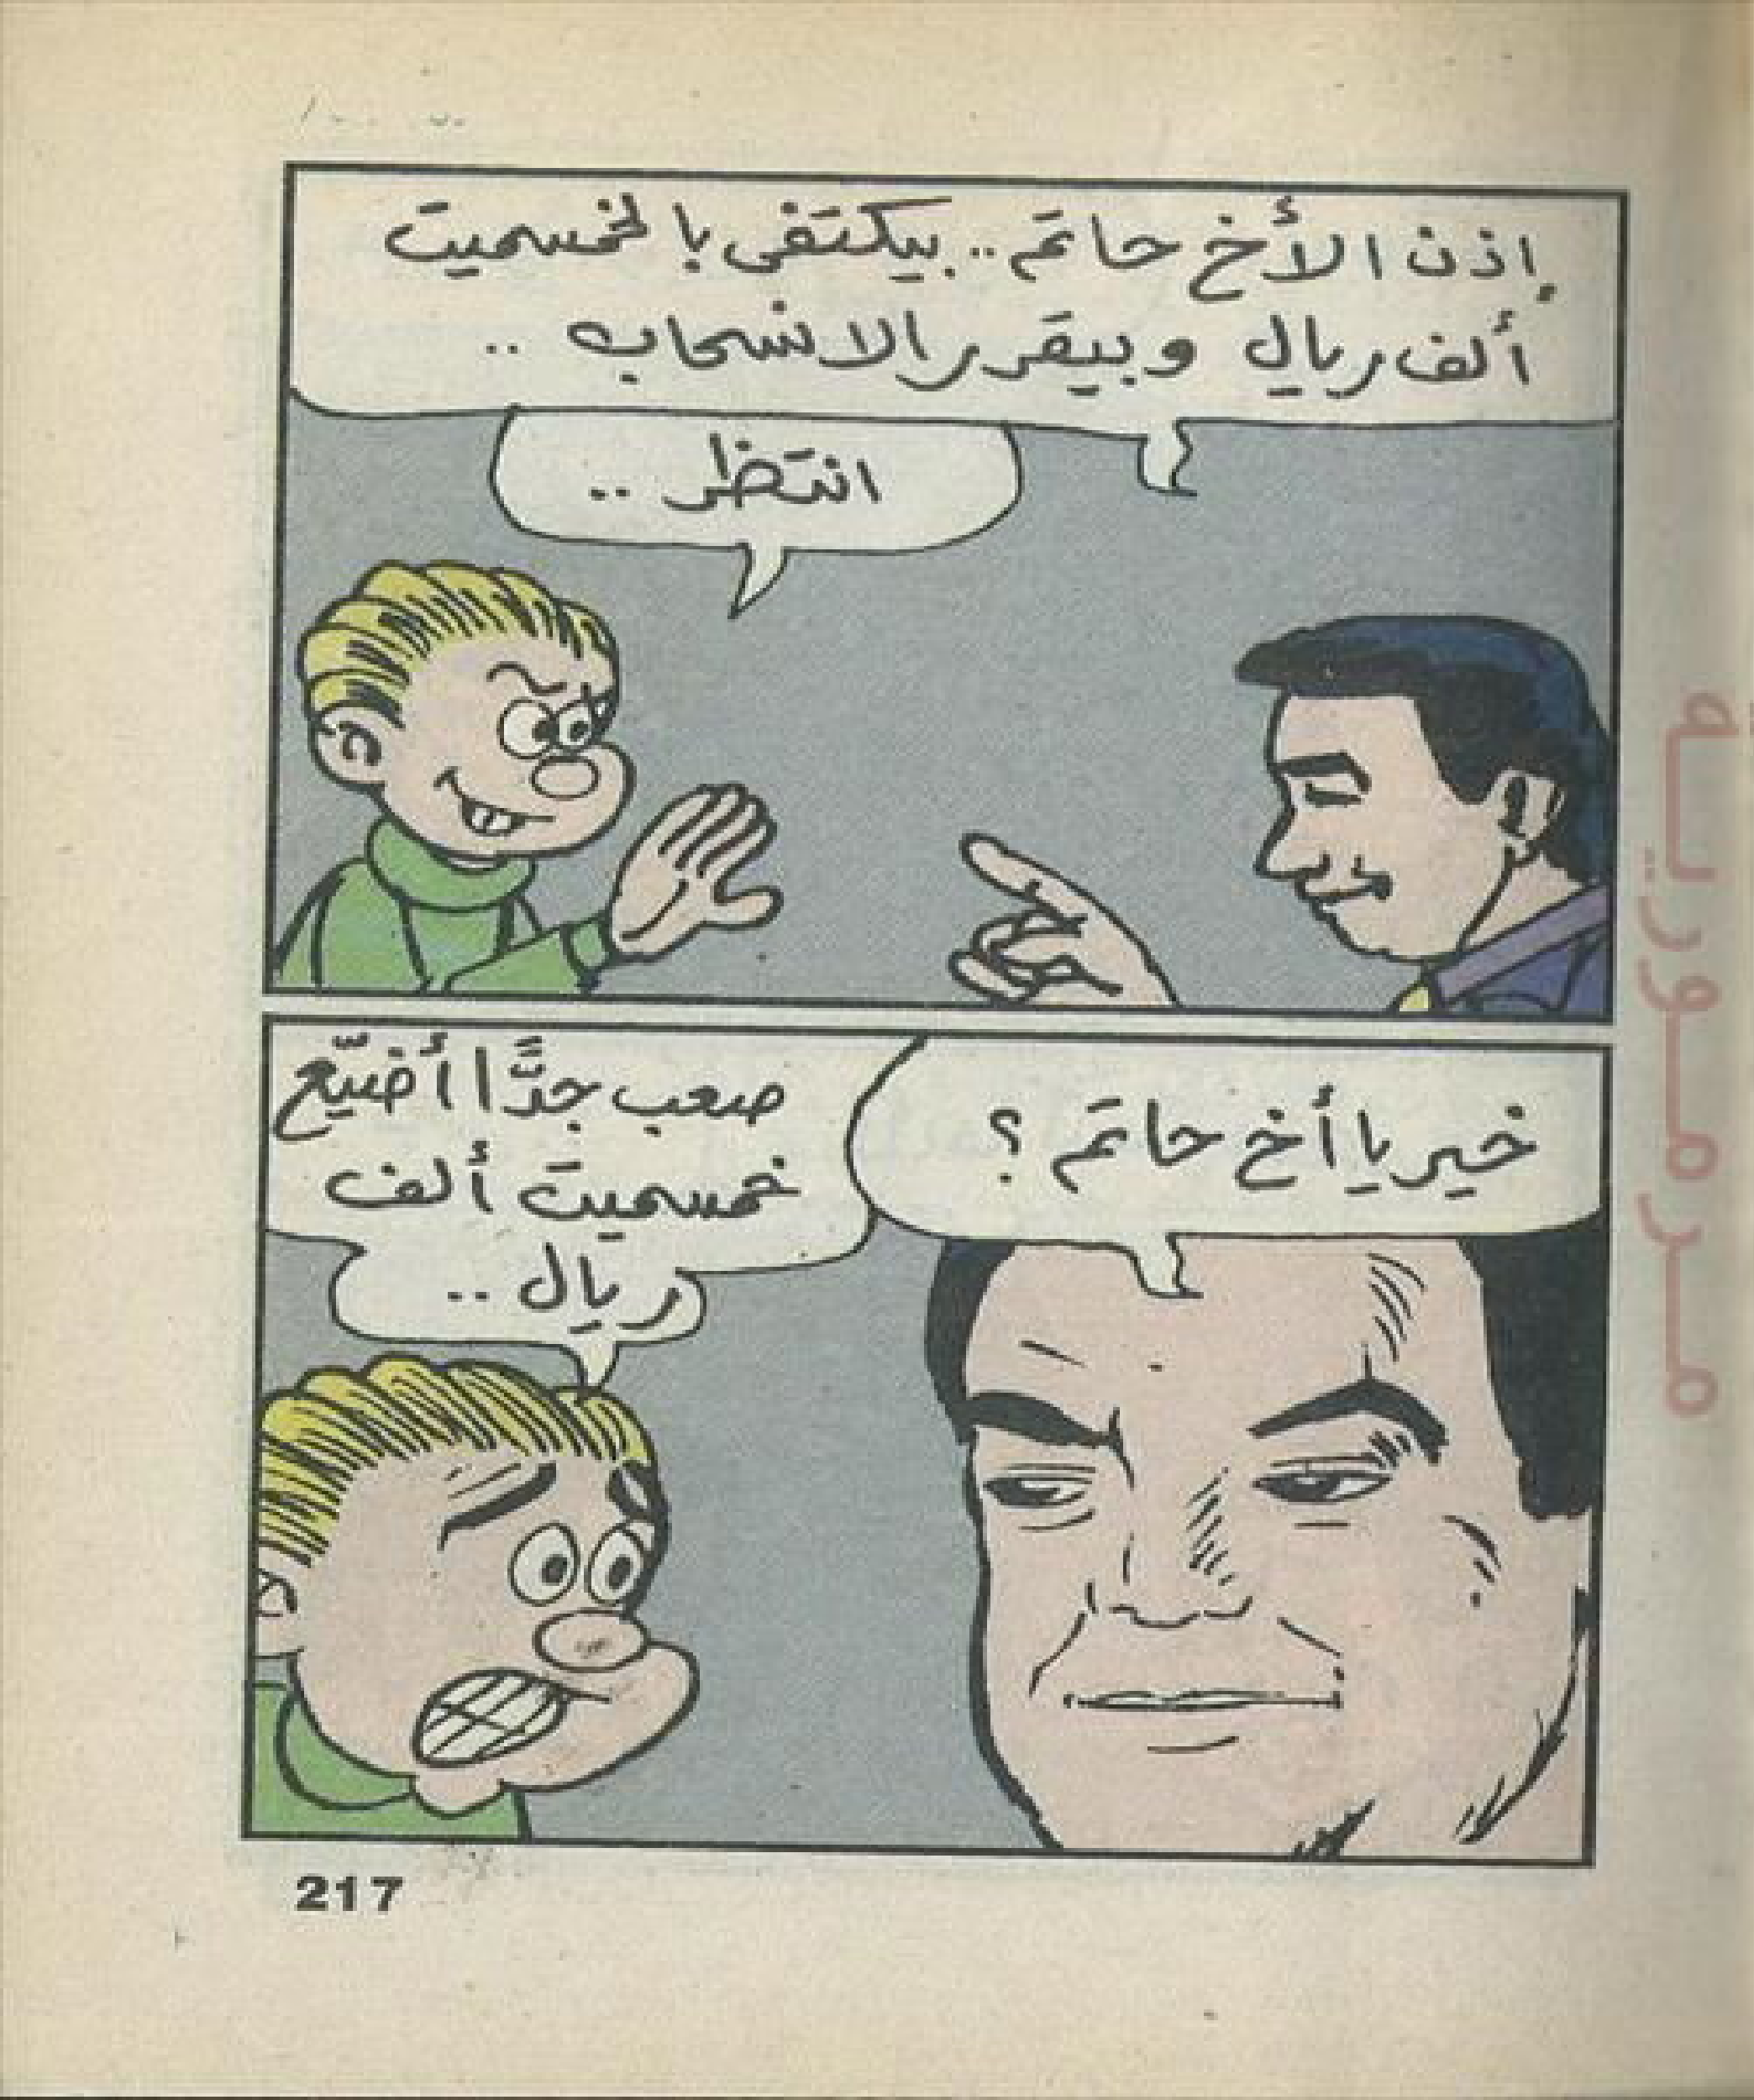 إذن الأخ حاتم.. بيكتفى بالخمسميت
ألف ريال وبيقرر الانسحاب ..
انتظر ..
خير يا أخ حاتم ؟
صعب جدًّا أضيّع
خمسميت ألف
ريال ..
217
مرمورية